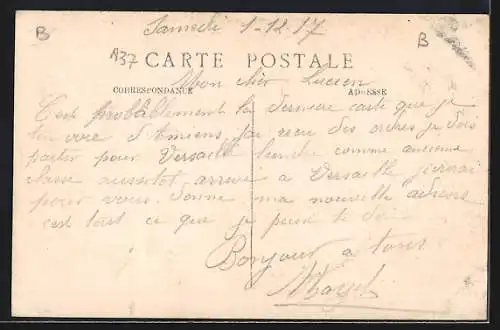 Samedi 1-12-17
B
B
A37
CARTE POSTALE
Mon cher Lucien
CORRESPONDANCE
ADRESSE
C'est probablement la dernière carte que je
d'Amiens j'ai reçu des ordres je dois
partir pour Versaille comme
classe aussitot arrivé a Versaille
pour vous donné ma nouvelle adresse
c'est tout ce que je peux te dire
Bonjour a tous
Marcel